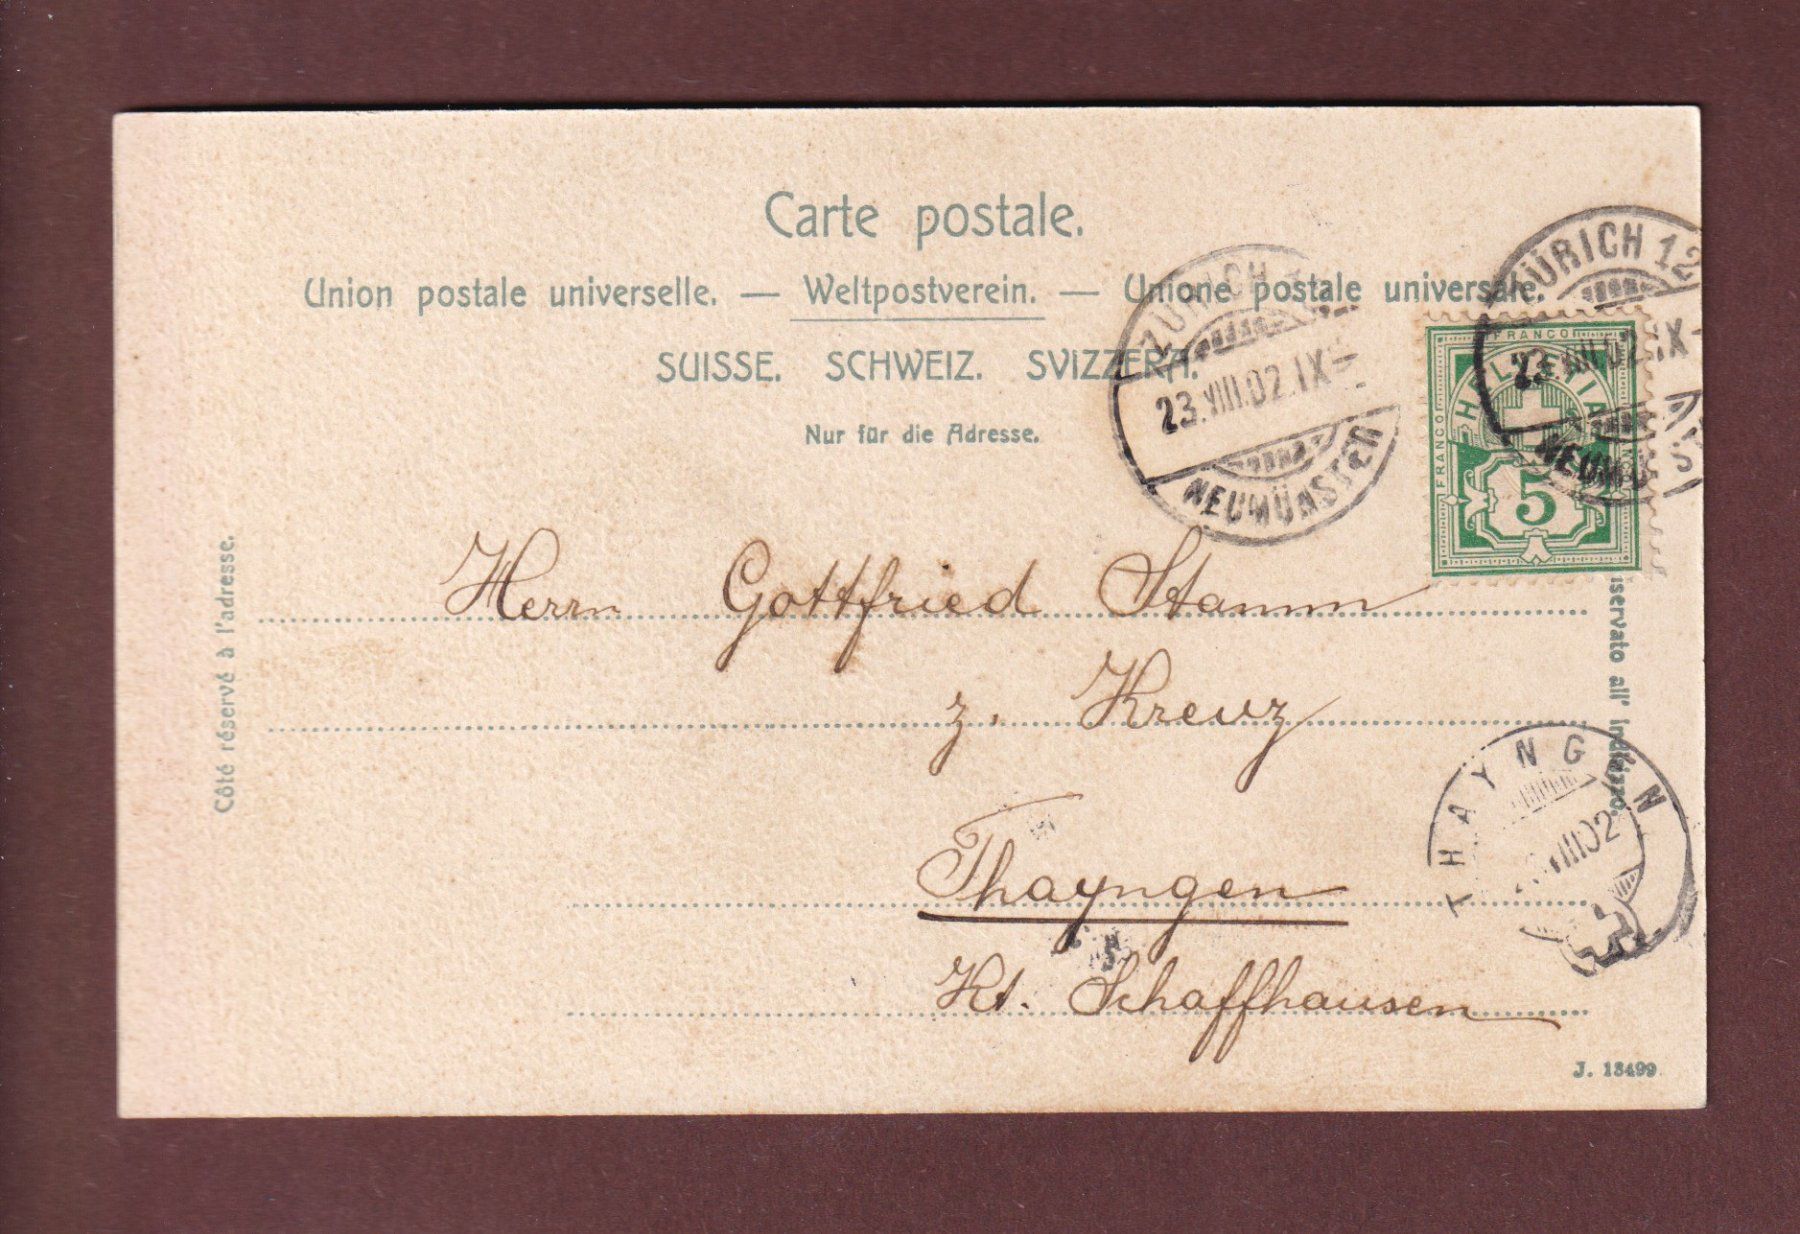 Carte postale.
Union postale universelle. — Weltpostverein. — Unione postale universale.
SUISSE. SCHWEIZ. SVIZZERA.
Nur für die Adresse.
ZÜRICH
23.VIII.02.IX-
NEUMÜNSTER
ZÜRICH 12
23.VIII.02.IX-
FRANCO
HELVETIA
FRANCO
5
Côté réservé à l'adresse.
Herrn Gottfried Stamm
z. Kreuz
Thayngen
Kt. Schaffhausen
all' indirizzo.
THAYNGEN
VIII 02
J. 13499